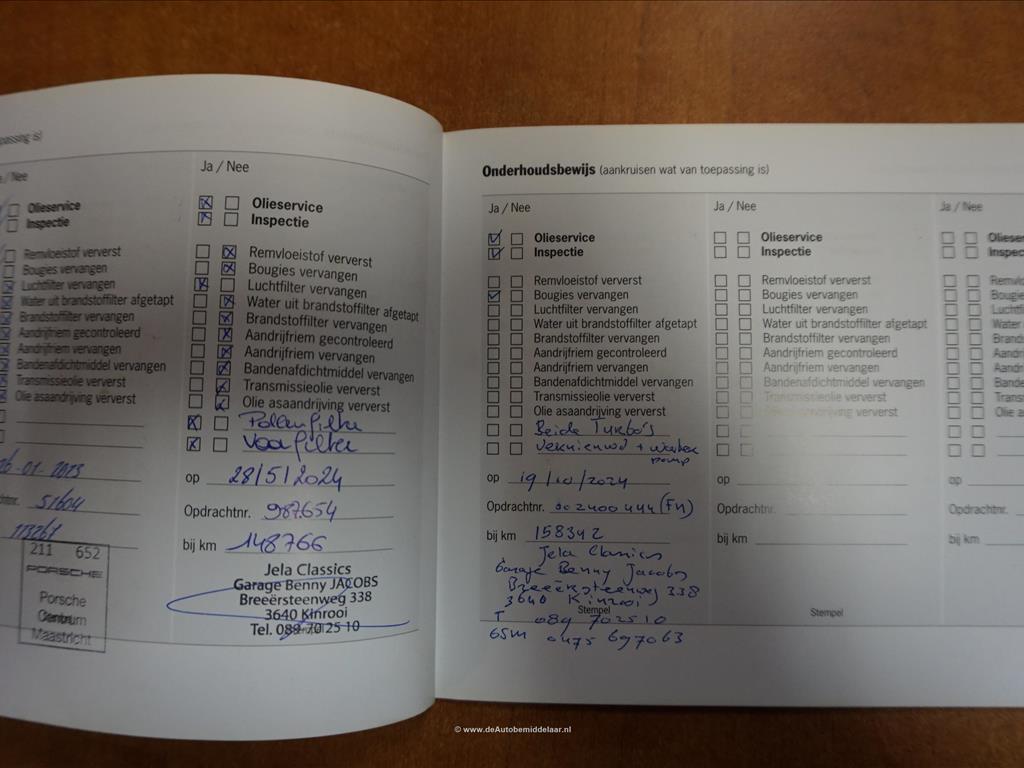 passing is)
a / Nee
Olieservice
Inspectie
Remvloeistof ververst
Bougies vervangen
Luchtfilter vervangen
Water uit brandstoffilter afgetapt
Brandstoffilter vervangen
Aandrijfriem gecontroleerd
Aandrijfriem vervangen
Bandenafdichtmiddel vervangen
Transmissieolie ververst
Olie asaandrijving ververst
26-01-2023
51604
113261
211 652
PORSCHE
Porsche
Centrum
Maastricht
Ja / Nee
Olieservice
Inspectie
Remvloeistof ververst
Bougies vervangen
Luchtfilter vervangen
Water uit brandstoffilter afgetapt
Brandstoffilter vervangen
Aandrijfriem gecontroleerd
Aandrijfriem vervangen
Bandenafdichtmiddel vervangen
Transmissieolie ververst
Olie asaandrijving ververst
Pollenfilter
Voorfilter
op 28/5/2024
Opdrachtnr. 987654
bij km 148766
Jela Classics
Garage Benny JACOBS
Breeërsteenweg 338
3640 Kinrooi
Tel. 089 70 25 10
Onderhoudsbewijs (aankruisen wat van toepassing is)
Ja / Nee
Olieservice
Inspectie
Remvloeistof ververst
Bougies vervangen
Luchtfilter vervangen
Water uit brandstoffilter afgetapt
Brandstoffilter vervangen
Aandrijfriem gecontroleerd
Aandrijfriem vervangen
Bandenafdichtmiddel vervangen
Transmissieolie ververst
Olie asaandrijving ververst
Beide Turbo's
vernieuwd + water
pomp
op 19/10/2024
Opdrachtnr. 202400444 (FM)
bij km 158342
Jela Classics
Garage Benny Jacobs
Breeërsteenweg 338
3640 Kinrooi
Stempel
T 089 702510
GSM 0475 697063
Ja / Nee
Olieservice
Inspectie
Remvloeistof ververst
Bougies vervangen
Luchtfilter vervangen
Water uit brandstoffilter afgetapt
Brandstoffilter vervangen
Aandrijfriem gecontroleerd
Aandrijfriem vervangen
Bandenafdichtmiddel vervangen
Transmissieolie ververst
Olie asaandrijving ververst
op
Opdrachtnr.
bij km
Stempel
Ja / Nee
Olieser
Inspec
Remvlo
Bougie
Luchtfi
Water
Brands
Aandri
Aandri
Bande
Transm
Olie a
op
Opdrachtnr.
bij km
© www.deAutobemiddelaar.nl